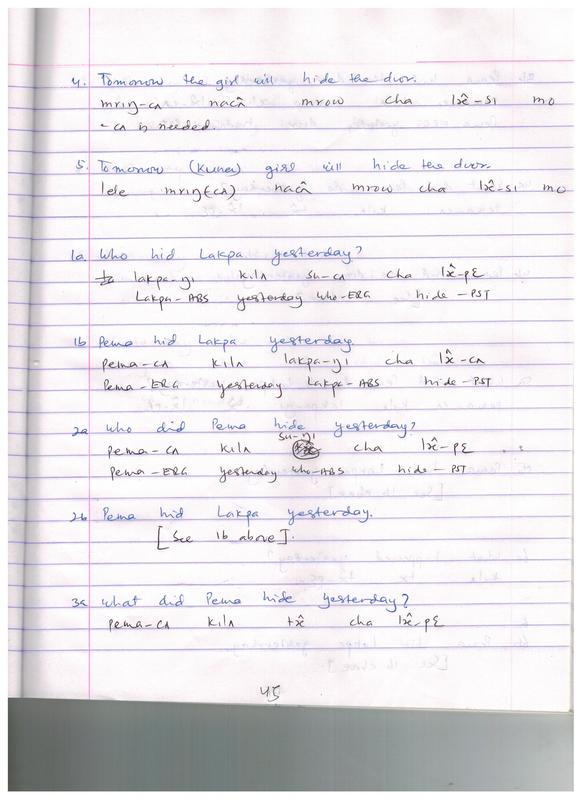 4. Tomorrow the girl will hide the door.
mrıŋ-cʌ nacâ mrow cha lɔ̂x-sı mo
-cʌ is needed.
5. Tomorrow (Kuna) girl will hide the door.
lele mrıŋ(cʌ) nacâ mrow cha lɔ̂x-sı mo
1a. Who hid Lakpa yesterday?
lakpa-ŋı kilʌ su-cʌ cha lɔ̂x-pɛ
Lakpa-ABS yesterday who-ERG hide-PST
1b Pema hid Lakpa yesterday.
pema-cʌ kilʌ lakpa-ŋı cha lɔ̂x-cʌ
Pema-ERG yesterday Lakpa-ABS hide-PST
2a Who did Pema hide yesterday?
pema-cʌ kilʌ su-ŋı cha lɔ̂x-pɛ
pema-ERG yesterday who-ABS hide-PST
2b Pema hid Lakpa yesterday.
[See 1b above].
3a What did Pema hide yesterday?
pema-cʌ kilʌ tx̂ cha lɔ̂x-pɛ
45